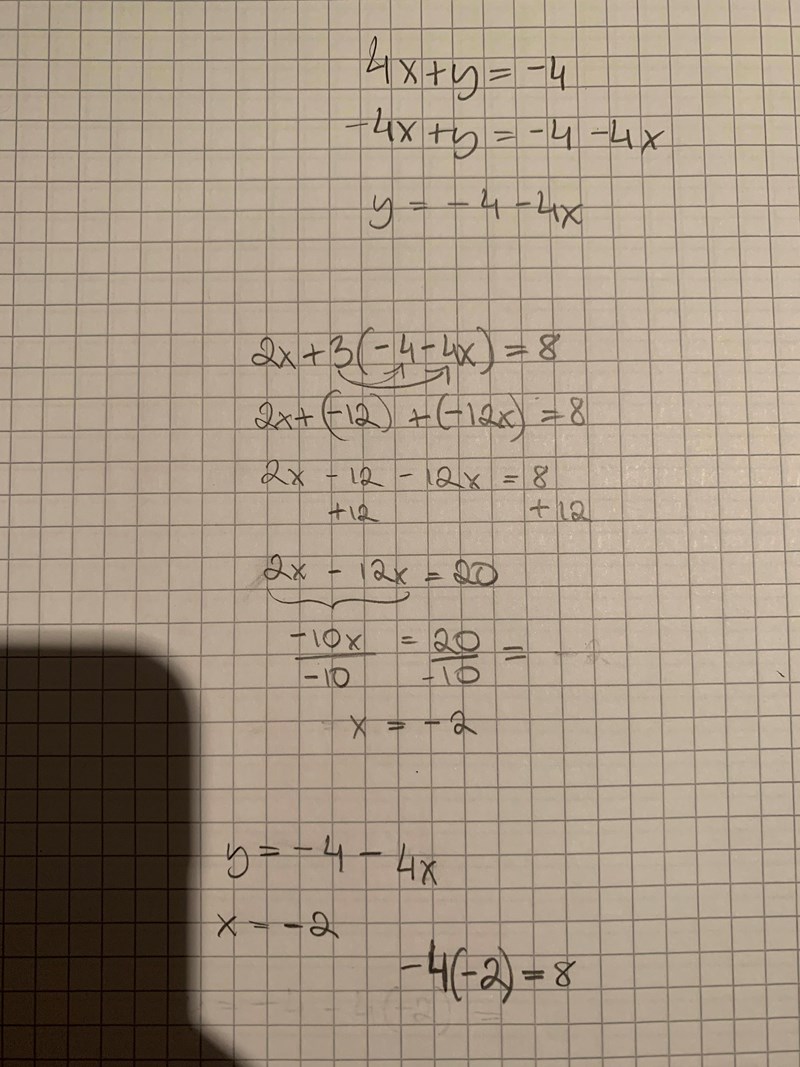 4x+y = -4
-4x+y = -4 -4x
y = -4 -4x
2x+3(-4-4x) = 8
2x+(-12) +(-12x) = 8
2x -12 -12x = 8
+12 +12
2x - 12x = 20
-10x = 20 =
-10 -10
x = -2
y = -4 - 4x
x = -2
-4(-2) = 8